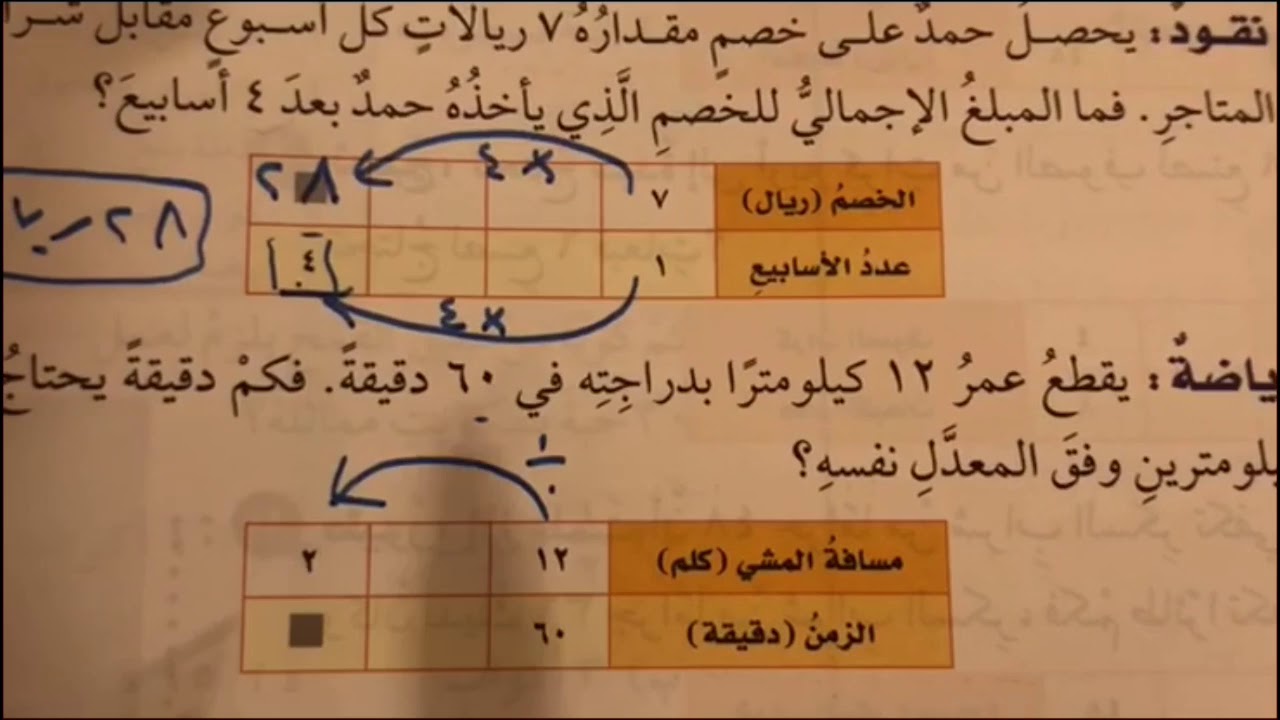 نقودٌ: يحصلُ حمدٌ على خصمٍ مقدارُهُ ٧ ريالاتٍ كلَّ أسبوعٍ مقابلَ
المتاجرِ. فما المبلغُ الإجماليُّ للخصمِ الَّذِي يأخذُهُ حمدٌ بعدَ ٤ أسابيعَ؟
× ٤
الخصمُ (ريال) ٧ ٢٨
عددُ الأسابيعِ ١ ٤
× ٤
٢٨
ياضةٌ: يقطعُ عمرُ ١٢ كيلومترًا بدراجتِه في ٦٠ دقيقةً. فكمْ دقيقةً يحتاجُ
يلومترينِ وفقَ المعدَّلِ نفسهِ؟
÷
مسافةُ المشي (كلم) ١٢ ٢
الزمنُ (دقيقة) ٦٠